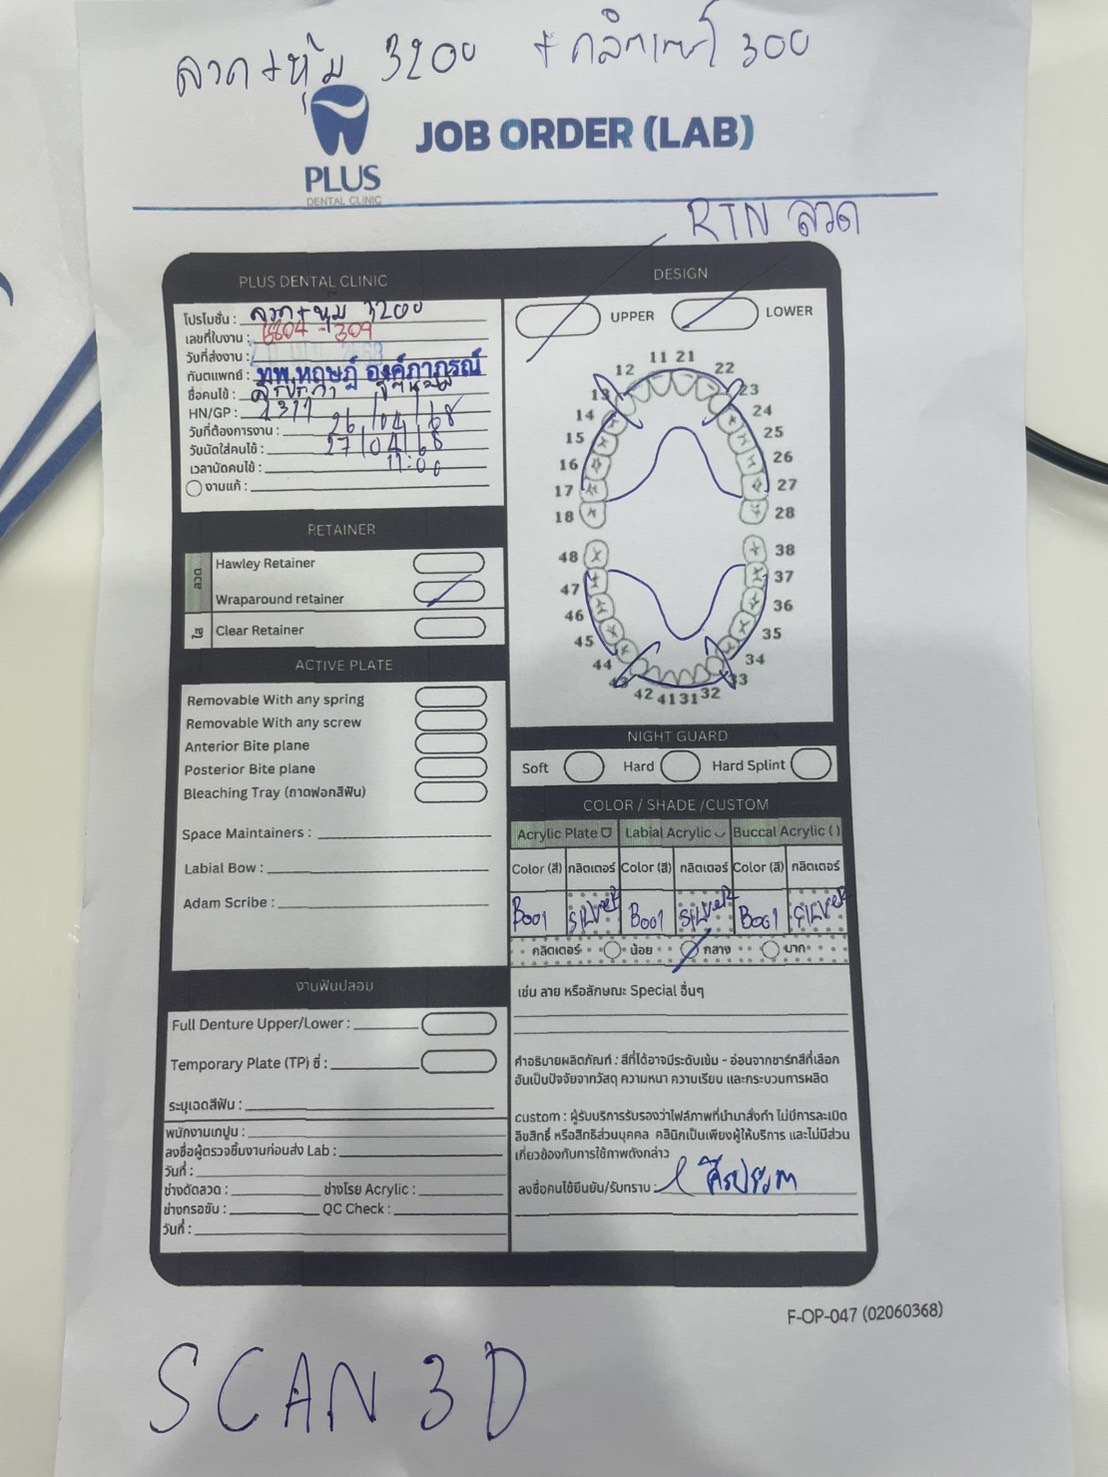 ลวด + หุ้ม 3200 + กลิตเตอร์ 300
PLUS
DENTAL CLINIC
JOB ORDER (LAB)
RTN ลวด
PLUS DENTAL CLINIC
โปรโมชั่น : ลวด + หุ้ม 3200
เลขที่ใบงาน : 6804 - 309
วันที่ส่งงาน :
ทันตแพทย์ : ทพ.หฤษฎ์ องค์ภาภรณ์
ชื่อคนไข้ :
HN/GP :
วันที่ต้องการงาน : 26/04/68
วันนัดใส่คนไข้ : 27/04/68
เวลานัดคนไข้ : 11:00
งานแก้ :
RETAINER
ลวด
Hawley Retainer
Wraparound retainer
ใส
Clear Retainer
ACTIVE PLATE
Removable With any spring
Removable With any screw
Anterior Bite plane
Posterior Bite plane
Bleaching Tray (ถาดฟอกสีฟัน)
Space Maintainers :
Labial Bow :
Adam Scribe :
งานฟันปลอม
Full Denture Upper/Lower :
Temporary Plate (TP) ซี่ :
ระบุเฉดสีฟัน :
พนักงานเทปูน :
ลงชื่อผู้ตรวจชิ้นงานก่อนส่ง Lab :
วันที่ :
ช่างดัดลวด : ช่างโรย Acrylic :
ช่างกรอขัน : QC Check :
วันที่ :
DESIGN
UPPER LOWER
11 21
12 22
13 23
14 24
15 25
16 26
17 27
18 28
48 38
47 37
46 36
45 35
44 34
43 33
42 41 31 32
NIGHT GUARD
Soft Hard Hard Splint
COLOR / SHADE /CUSTOM
Acrylic Plate Labial Acrylic Buccal Acrylic ( )
Color (สี) กลิตเตอร์ Color (สี) กลิตเตอร์ Color (สี) กลิตเตอร์
B001 SILVER B001 SILVER B001 SILVER
กลิตเตอร์ น้อย กลาง มาก
เช่น ลาย หรือลักษณะ Special อื่นๆ
คำอธิบายผลิตภัณฑ์ : สีที่ได้อาจมีระดับเข้ม - อ่อนจากชาร์ทสีที่เลือก
อันเป็นปัจจัยจากวัสดุ ความหนา ความเรียบ และกระบวนการผลิต
custom : ผู้รับบริการรับรองว่าไฟล์ภาพที่นำมาสั่งทำ ไม่มีการละเมิด
ลิขสิทธิ์ หรือสิทธิส่วนบุคคล คลินิกเป็นเพียงผู้ให้บริการ และไม่มีส่วน
เกี่ยวข้องกับการใช้ภาพดังกล่าว
ลงชื่อคนไข้ยืนยัน/รับทราบ :
F-OP-047 (02060368)
SCAN 3D